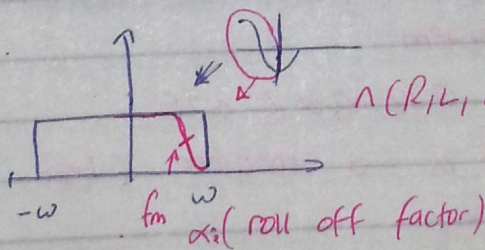 n(R,L,
-ω
fm
ω
α: (roll off factor)